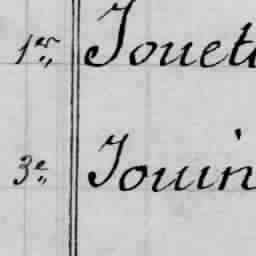 1er Jouet
3e Jouin